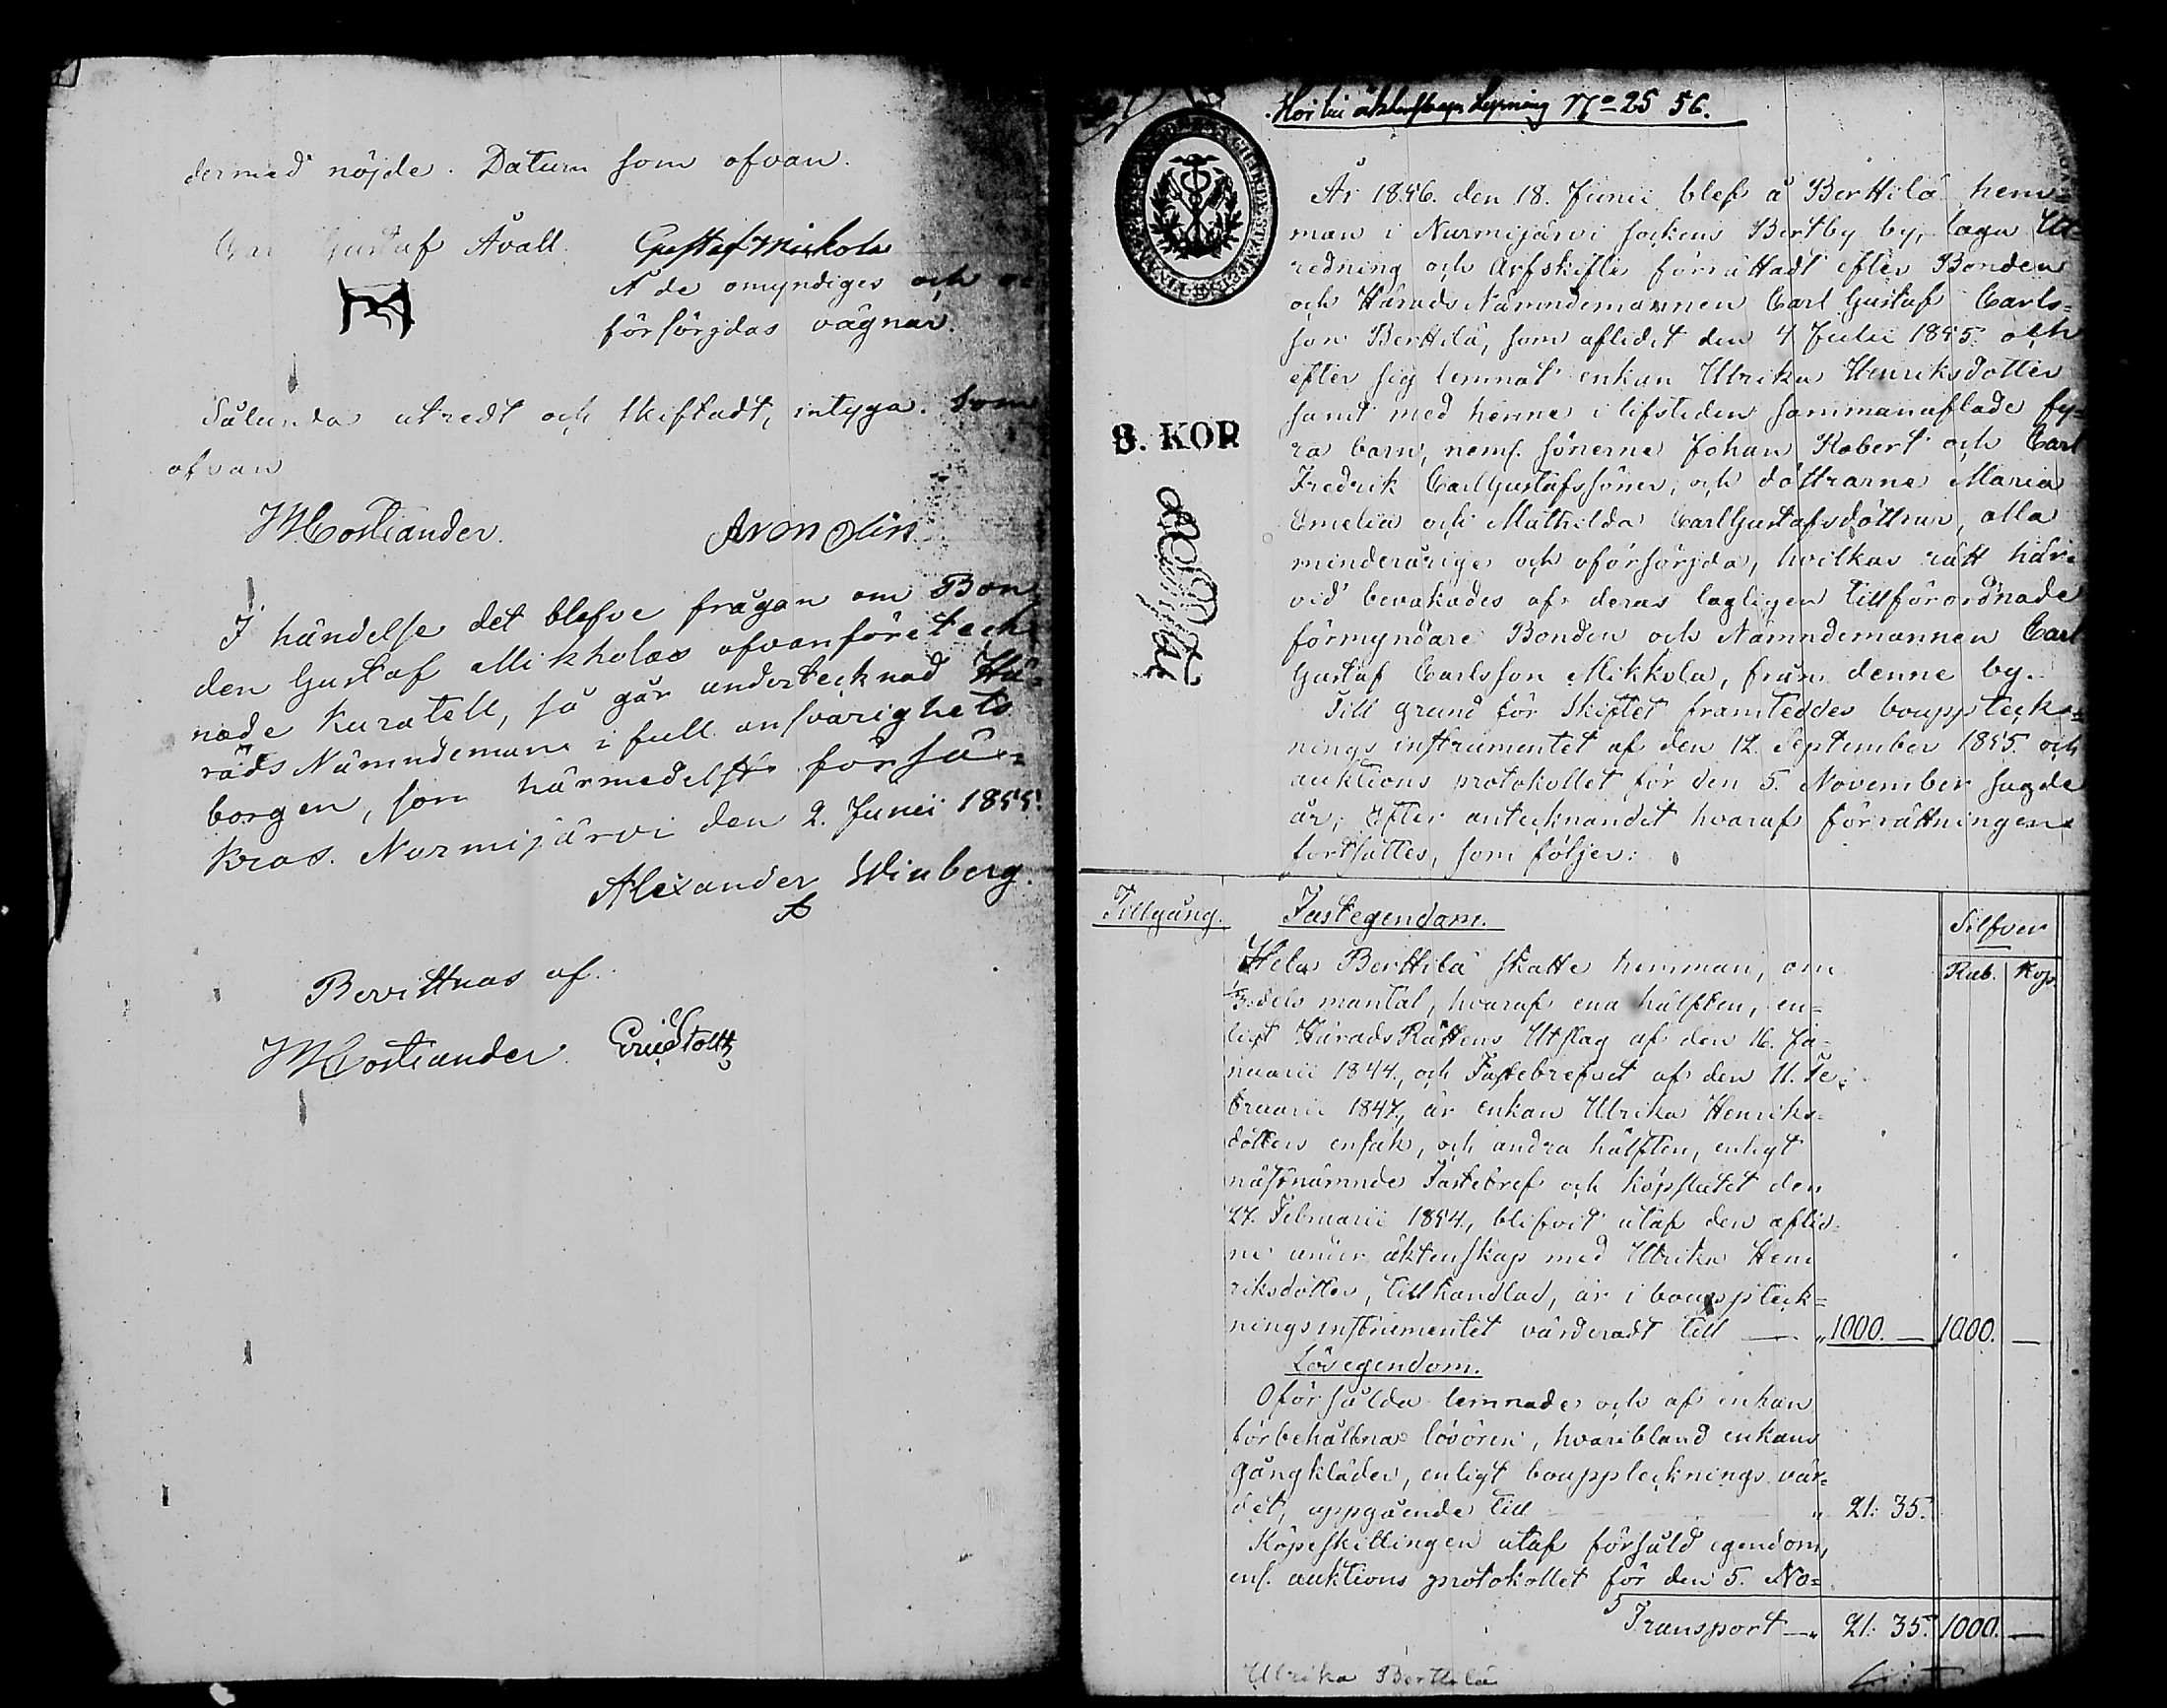 dermed nöjde. Datum som ofvan.
Gustaf Åvall. Gustaf Mickola
Å de omyndiges och o
försörjdas vägnar.
Sålunda utredt och skiftadt, intyga. Som
ofvan
Costiander.
I händelse det blefve frågan om Bon
den Gustaf Mikkolas ofvanföreteck
nade Kuratell, så går undertecknad Hä=
rads Nämndeman i full ansvarighets
borgen, som härmedelst försä=
kras. Nurmijärvi den 2. Junii 1855.
Alexander Winberg.
Bevittnas af.
Costiander. Eric Stoltz
No 25 56.
År 1856. den 18. Junii blef å Berttilä hem=
man i Nurmijärvi sockens Bertby by, laga Ut=
redning och Arfskifte förrättadt efter Bonden
och Härads Nämndemannen Carl Gustaf Carls=
son Berttilä, som aflidit den 4 Julii 1855. och
efter sig lemnat enkan Ulrika Henriksdotter
samt med henne i lifstiden sammanaflade fy=
ra barn, neml. sönerne Johan Robert och Carl
Fredrik Carl Gustafssöner, och döttrarne Maria
Emelia och Mathilda Carl Gustafsdöttrar, alla
minderårige och oförsörjda, hvilkas rätt här=
vid bevakades af deras lagligen tillförordnade
förmyndare Bonden och Nämndemannen Carl
Gustaf Carlsson Mikkola, från denne by.
Till grund för Skiftet framteddes bouppteck=
nings instrumentet af den 12. September 1855. och
auktions protokollet för den 5. November sagde
år, efter antecknandet hvaraf förrättningen
fortsattes, som följer:
8. KOP
Tillgång. Fastegendom. Silfver
Rub. Kop.
Hela Berttilä skatte hemman, om
1/3 dels mantal, hvaraf ena hälften, en=
ligt Härads Rättens Utslag af den 16. Ja=
nuarii 1844., och Fastebrefvet af den 11. Fe=
bruarii 1847., är enkan Ulrika Henriks=
dotters ensak, och andra hälften, enligt
nästnämnde Fastebref och köpslutet den
27. Februarii 1854., blifvit utaf den aflid=
ne under äktenskap med Ulrika Hen
riksdotter, tillhandlad, är i bouppteck=
ningsinstrumentet värderadt till — „ 1000. — 1000. —
Lösegendom.
Oförsålda lemnade och af enkan
förbehållna lösören, hvaribland enkans
gångkläder, enligt bouppteckningsvär=
det, uppgående till „ 21: 35.
Köpeskillingen utaf försåld egendom,
enl. auktions protokollet för den 5. No=
Transport — „ 21: 35. 1000. —
Ulrika Berttilä